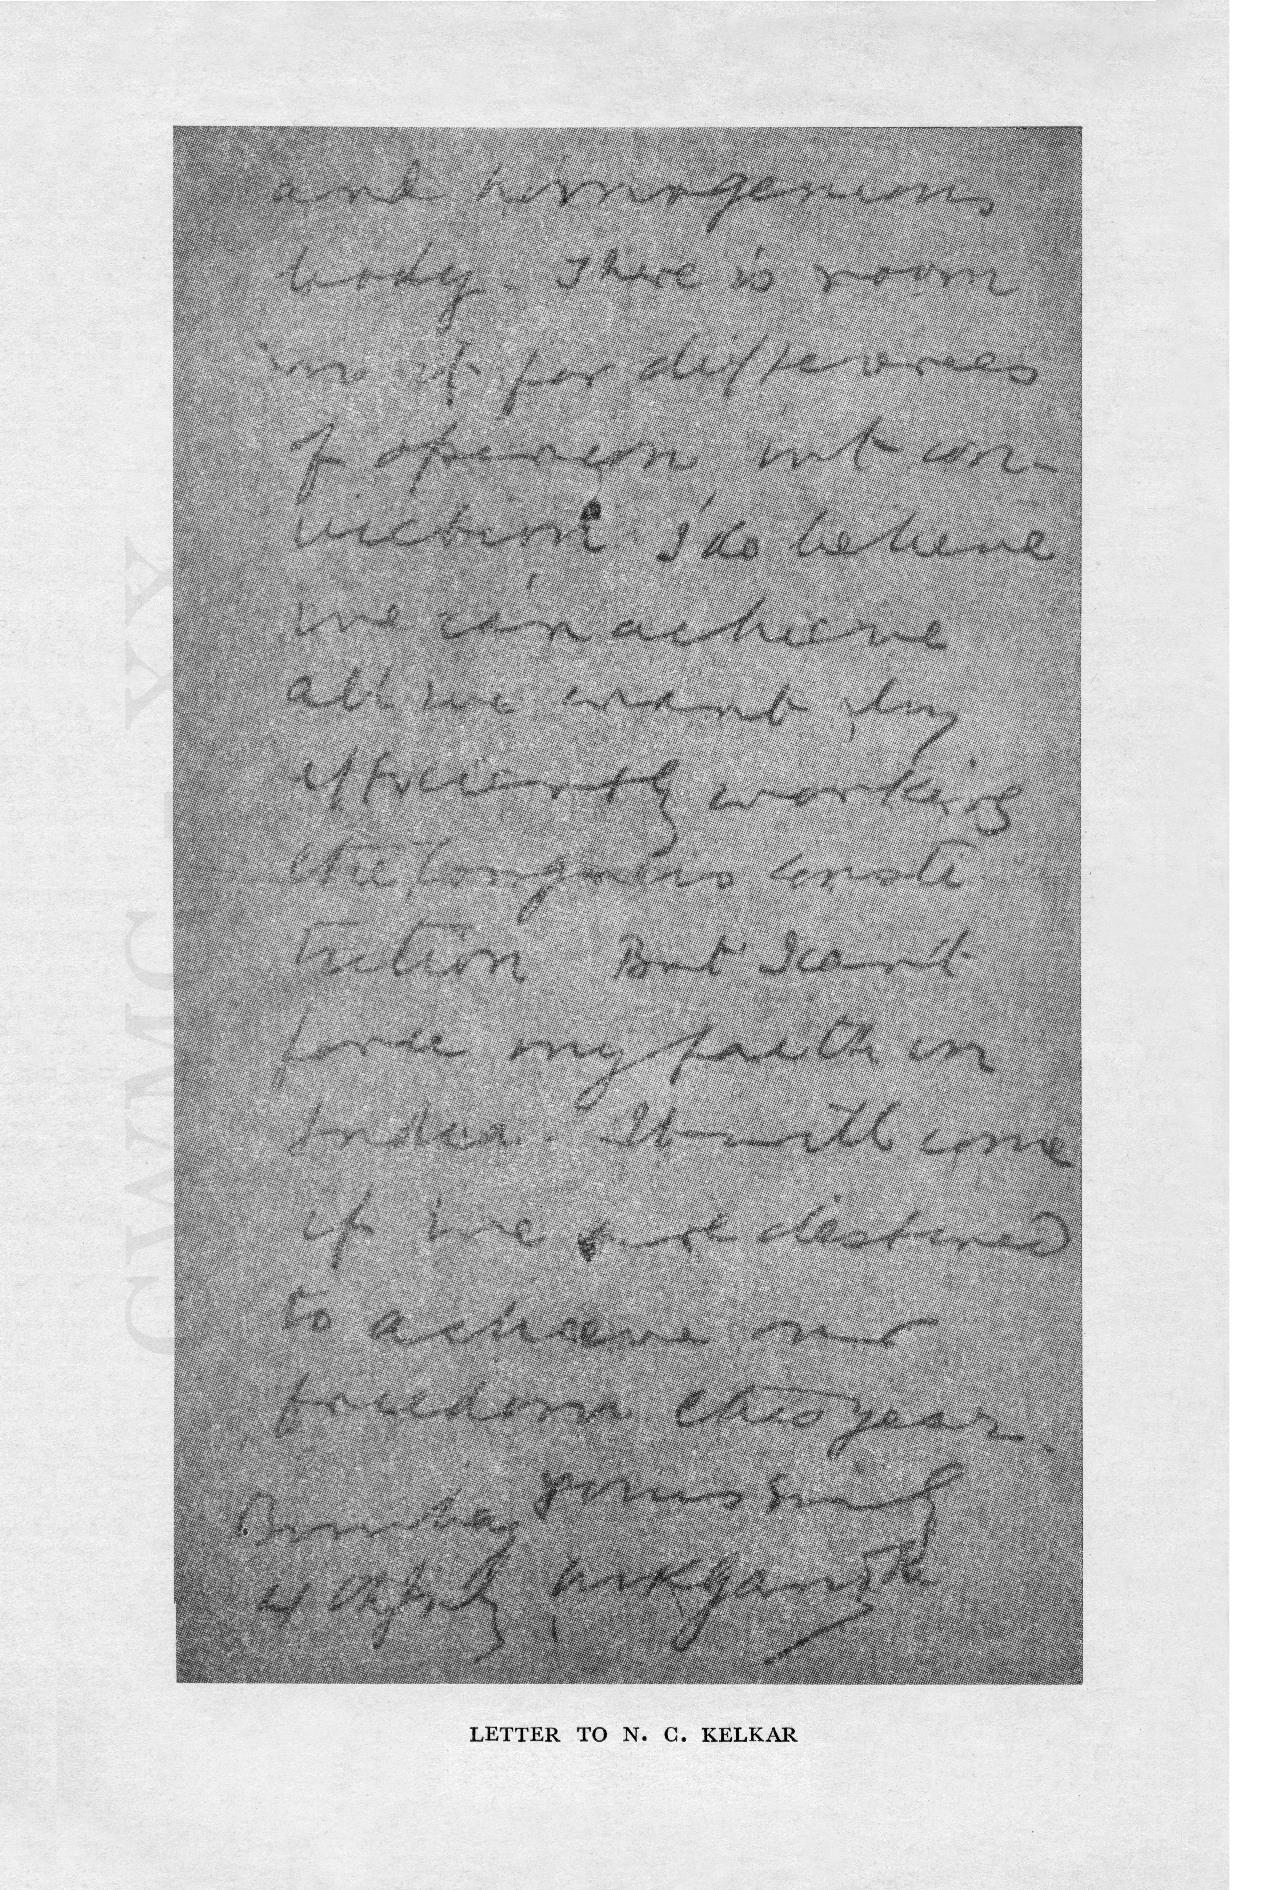 and homogenious
body. There is room
in it for differences
of opinion not con-
viction. I do believe
we can achieve
all we want by
efficiently working
the Congress consti
tution But I can't
force my faith in
India. It will come
if we are destined
to achieve our
freedom this year.
Yours sincly
Bombay
4th July MKGandhi
LETTER TO N. C. KELKAR
CWMC - XX